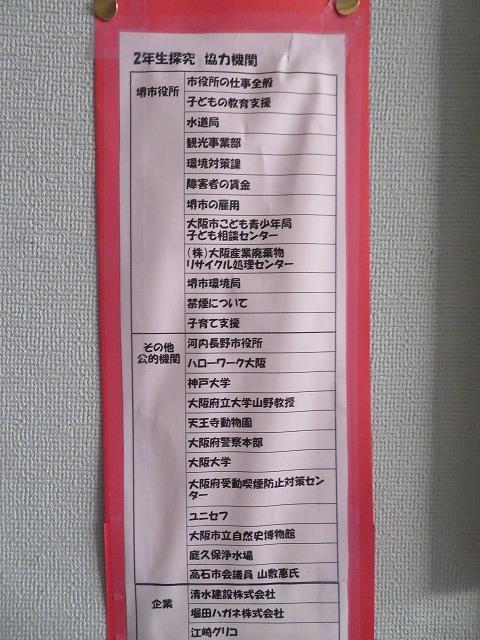 2年生探究 協力機関
堺市役所
市役所の仕事全般
子どもの教育支援
水道局
観光事業部
環境対策課
障害者の賃金
堺市の雇用
大阪市こども青少年局
子ども相談センター
(株)大阪産業廃棄物
リサイクル処理センター
堺市環境局
禁煙について
子育て支援
その他
公的機関
河内長野市役所
ハローワーク大阪
神戸大学
大阪府立大学山野教授
天王寺動物園
大阪府警察本部
大阪大学
大阪府受動喫煙防止対策セン
ター
ユニセフ
大阪市立自然史博物館
庭久保浄水場
高石市会議員 山敷恵氏
企業
清水建設株式会社
堀田ハガネ株式会社
江崎グリコ